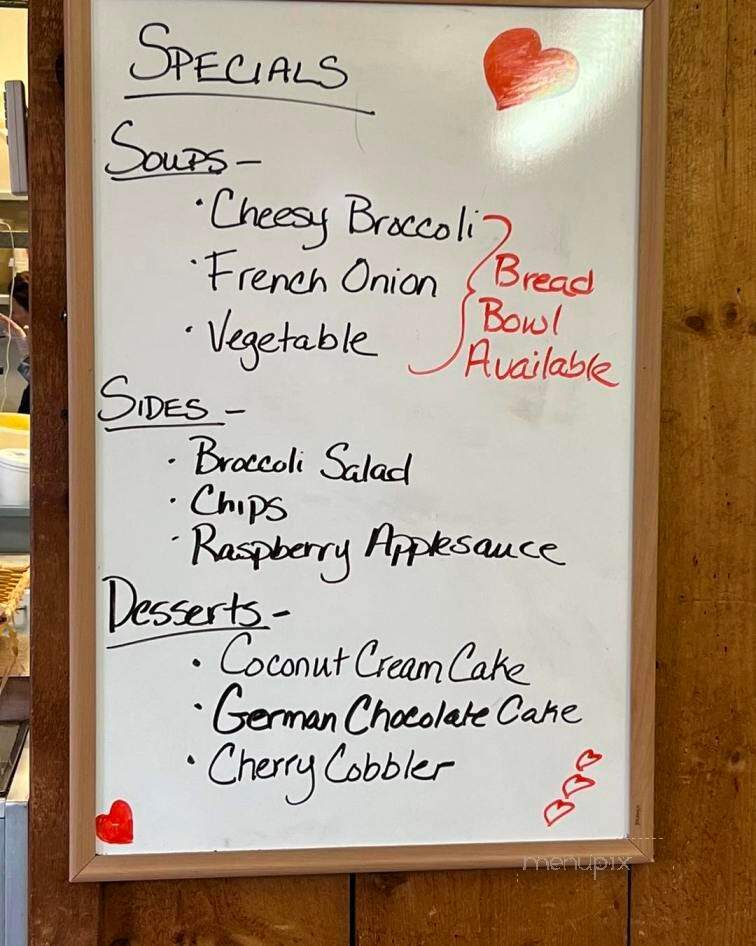 SPECIALS
SOUPS -
• Cheesy Broccoli
• French Onion
• Vegetable
Bread
Bowl
Available
SIDES -
• Broccoli Salad
• Chips
• Raspberry Applesauce
Desserts -
• Coconut Cream Cake
• German Chocolate Cake
• Cherry Cobbler
menupix